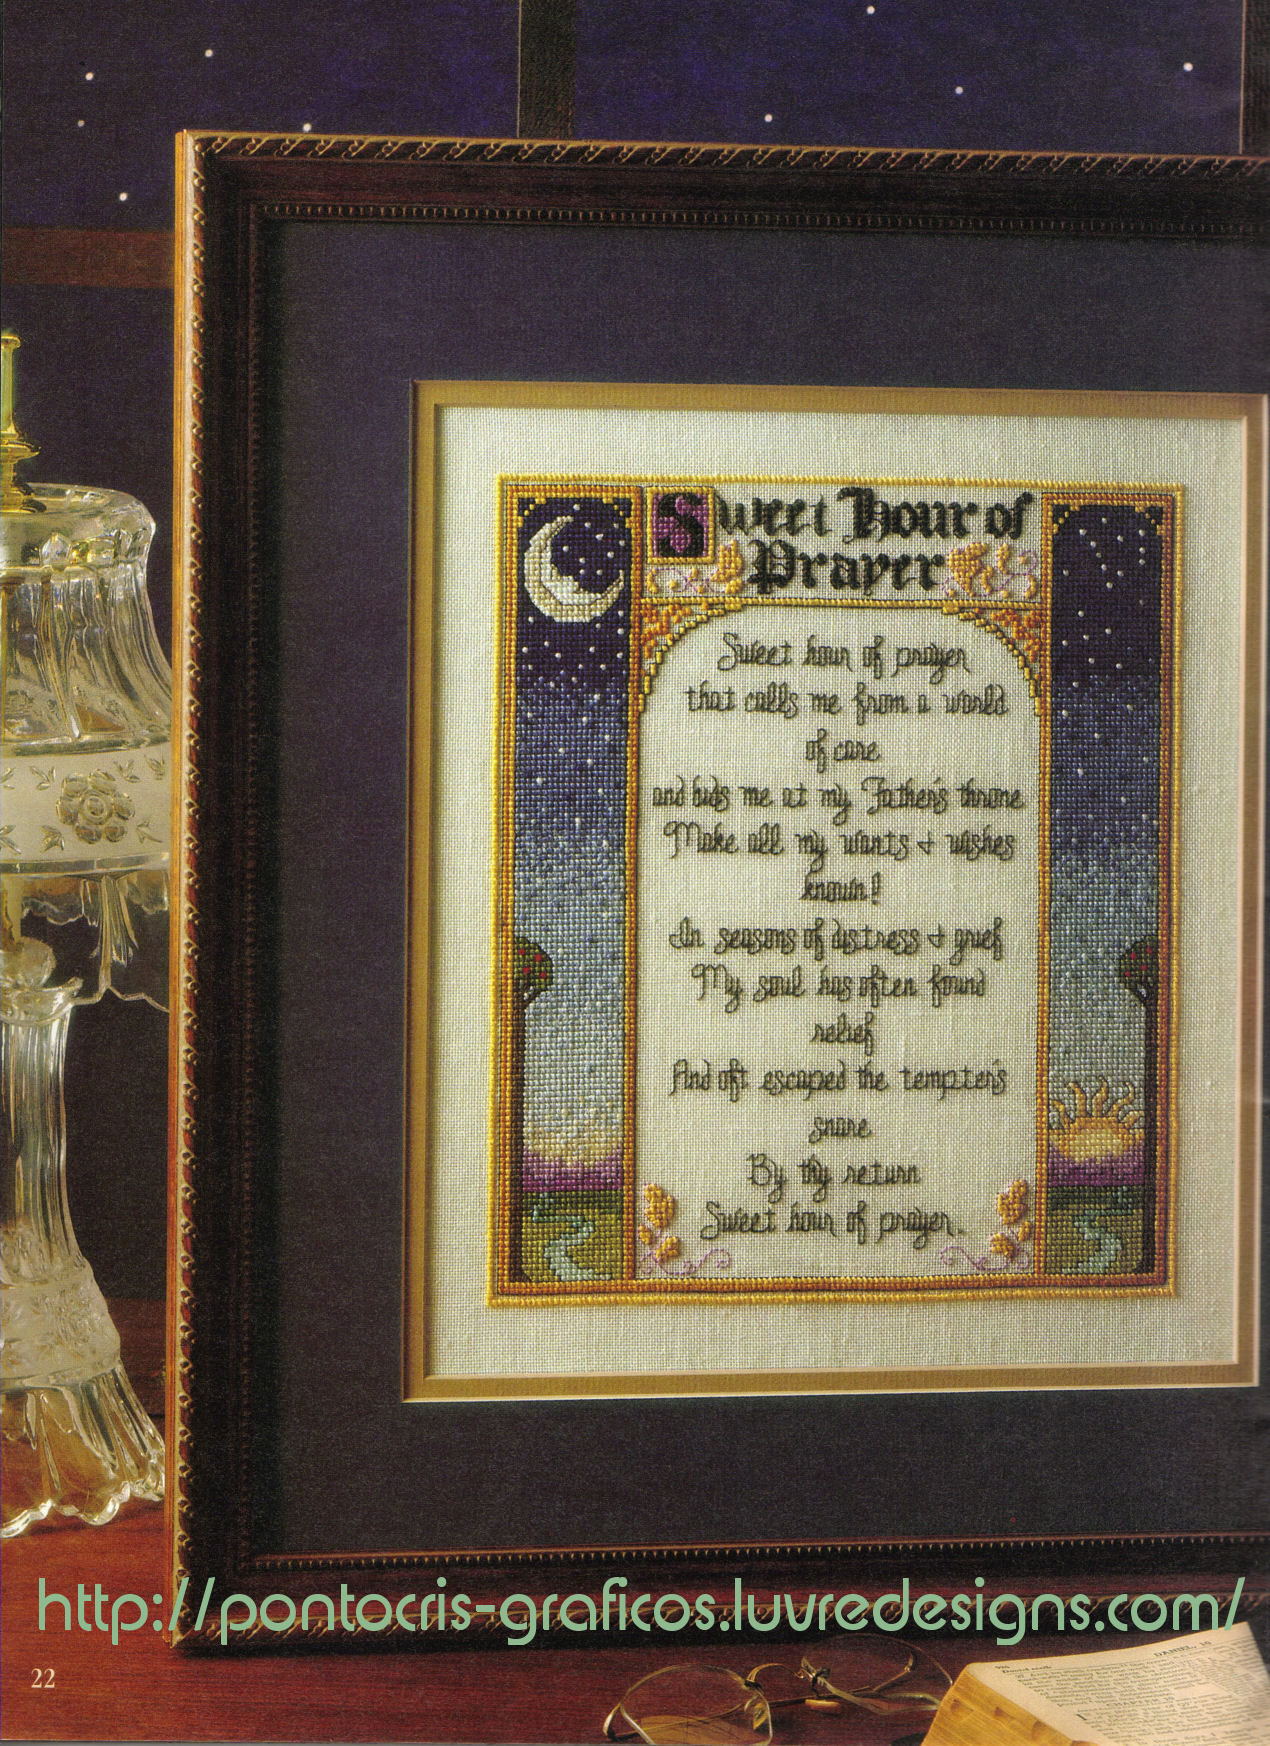 Sweet Hour of
Prayer
Sweet hour of prayer
that calls me from a world
of care
and bids me at my Father's throne
Make all my wants & wishes
known!
In seasons of distress & grief
My soul has often found
relief
And oft escaped the tempter's
snare
By thy return
Sweet hour of prayer.
http://pontocris-graficos.luvredesigns.com/
22
DANIEL, 10